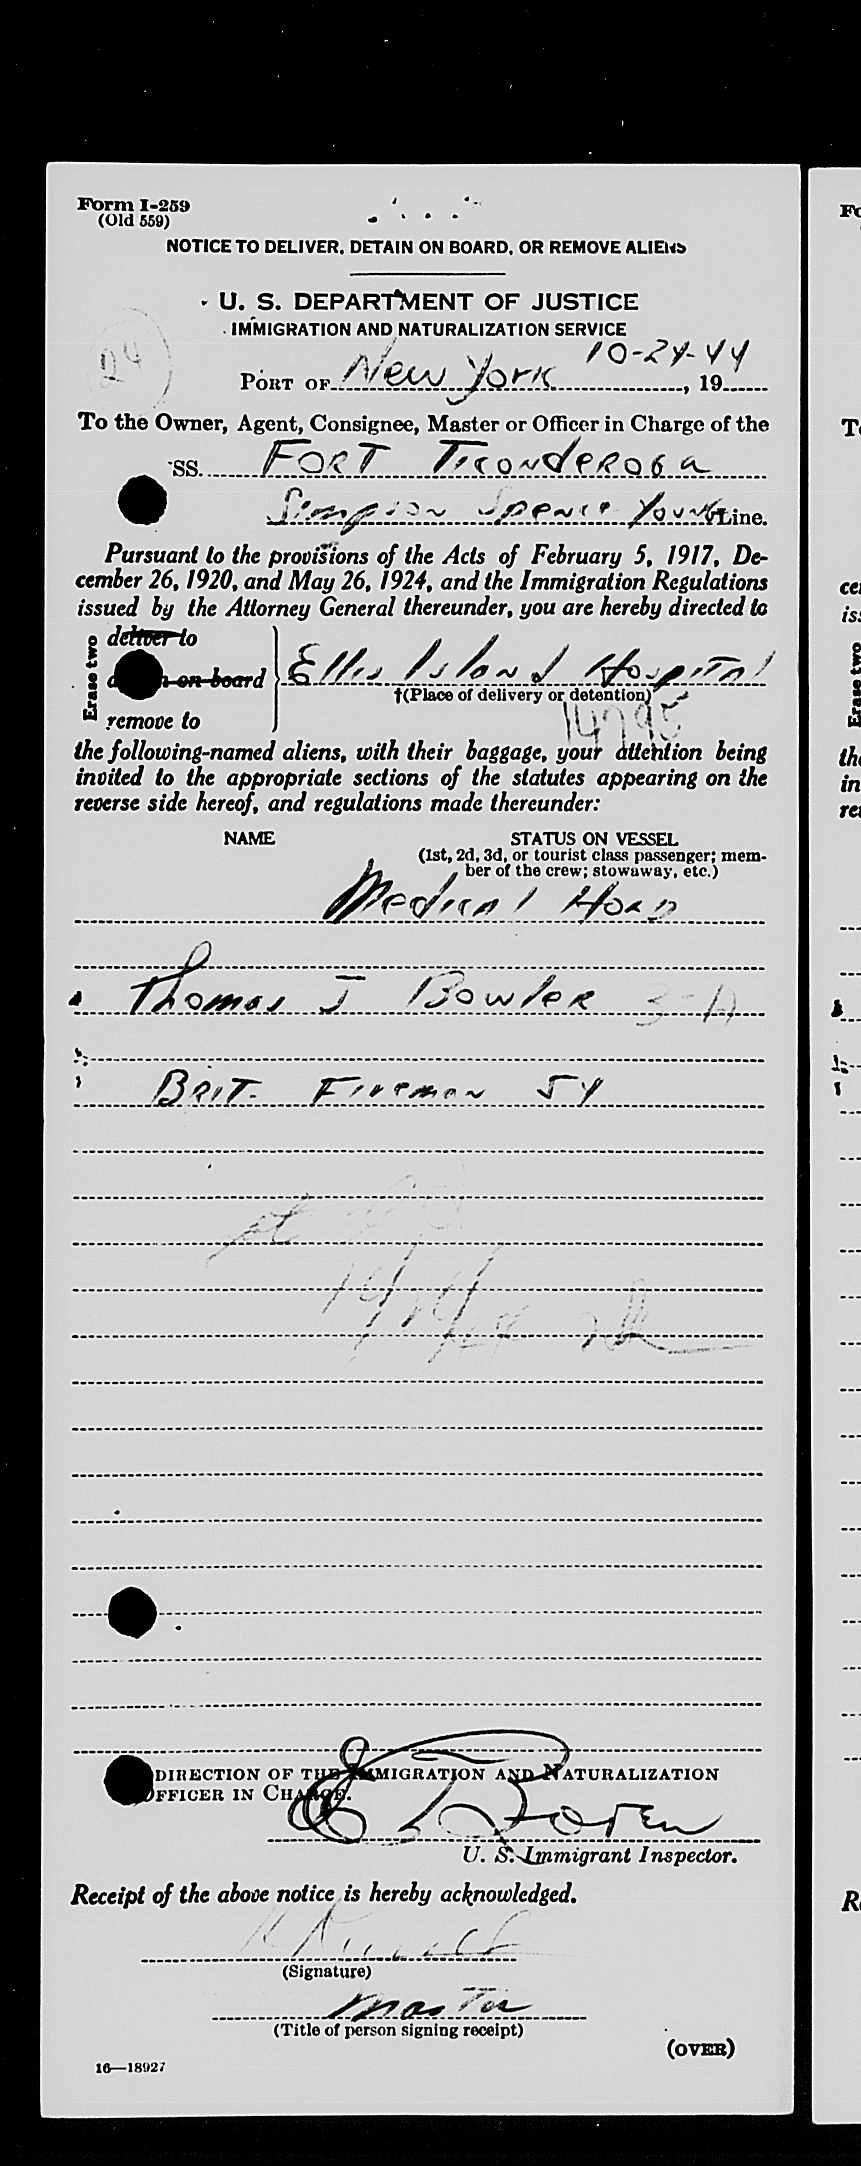 Form I-259
(Old 559)
NOTICE TO DELIVER, DETAIN ON BOARD, OR REMOVE ALIENS
U. S. DEPARTMENT OF JUSTICE
IMMIGRATION AND NATURALIZATION SERVICE
24
10-24-44
PORT OF New York, 19
To the Owner, Agent, Consignee, Master or Officer in Charge of the
SS. FORT TICONDEROGA
Simpson Spence Young Line.
Pursuant to the provisions of the Acts of February 5, 1917, De-
cember 26, 1920, and May 26, 1924, and the Immigration Regulations
issued by the Attorney General thereunder, you are hereby directed to
Erase two
deliver to
on board
Ellis Island Hospital
†(Place of delivery or detention)
remove to
14795
the following-named aliens, with their baggage, your attention being
invited to the appropriate sections of the statutes appearing on the
reverse side hereof, and regulations made thereunder:
NAME STATUS ON VESSEL
(1st, 2d, 3d, or tourist class passenger; mem-
ber of the crew; stowaway, etc.)
Medical Hold
Thomas J Bowler 3-A
BRIT. Fireman 54
DIRECTION OF THE IMMIGRATION AND NATURALIZATION
OFFICER IN CHARGE.
U. S. Immigrant Inspector.
Receipt of the above notice is hereby acknowledged.
(Signature)
Master
(Title of person signing receipt)
(OVER)
16—18927